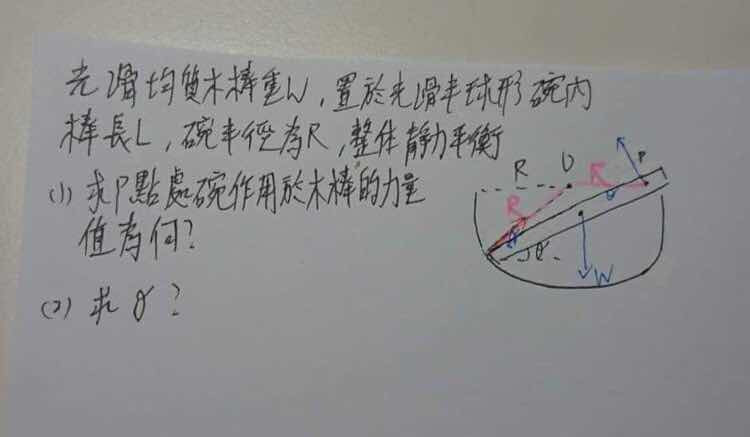 光滑均質木棒重W，置於光滑半球形碗內
棒長L，碗半徑為R，整体靜力平衡
(1) 求P點處碗作用於木棒的力量
值為何？
(2) 求θ？
R O P
R R
θ θ
θ W